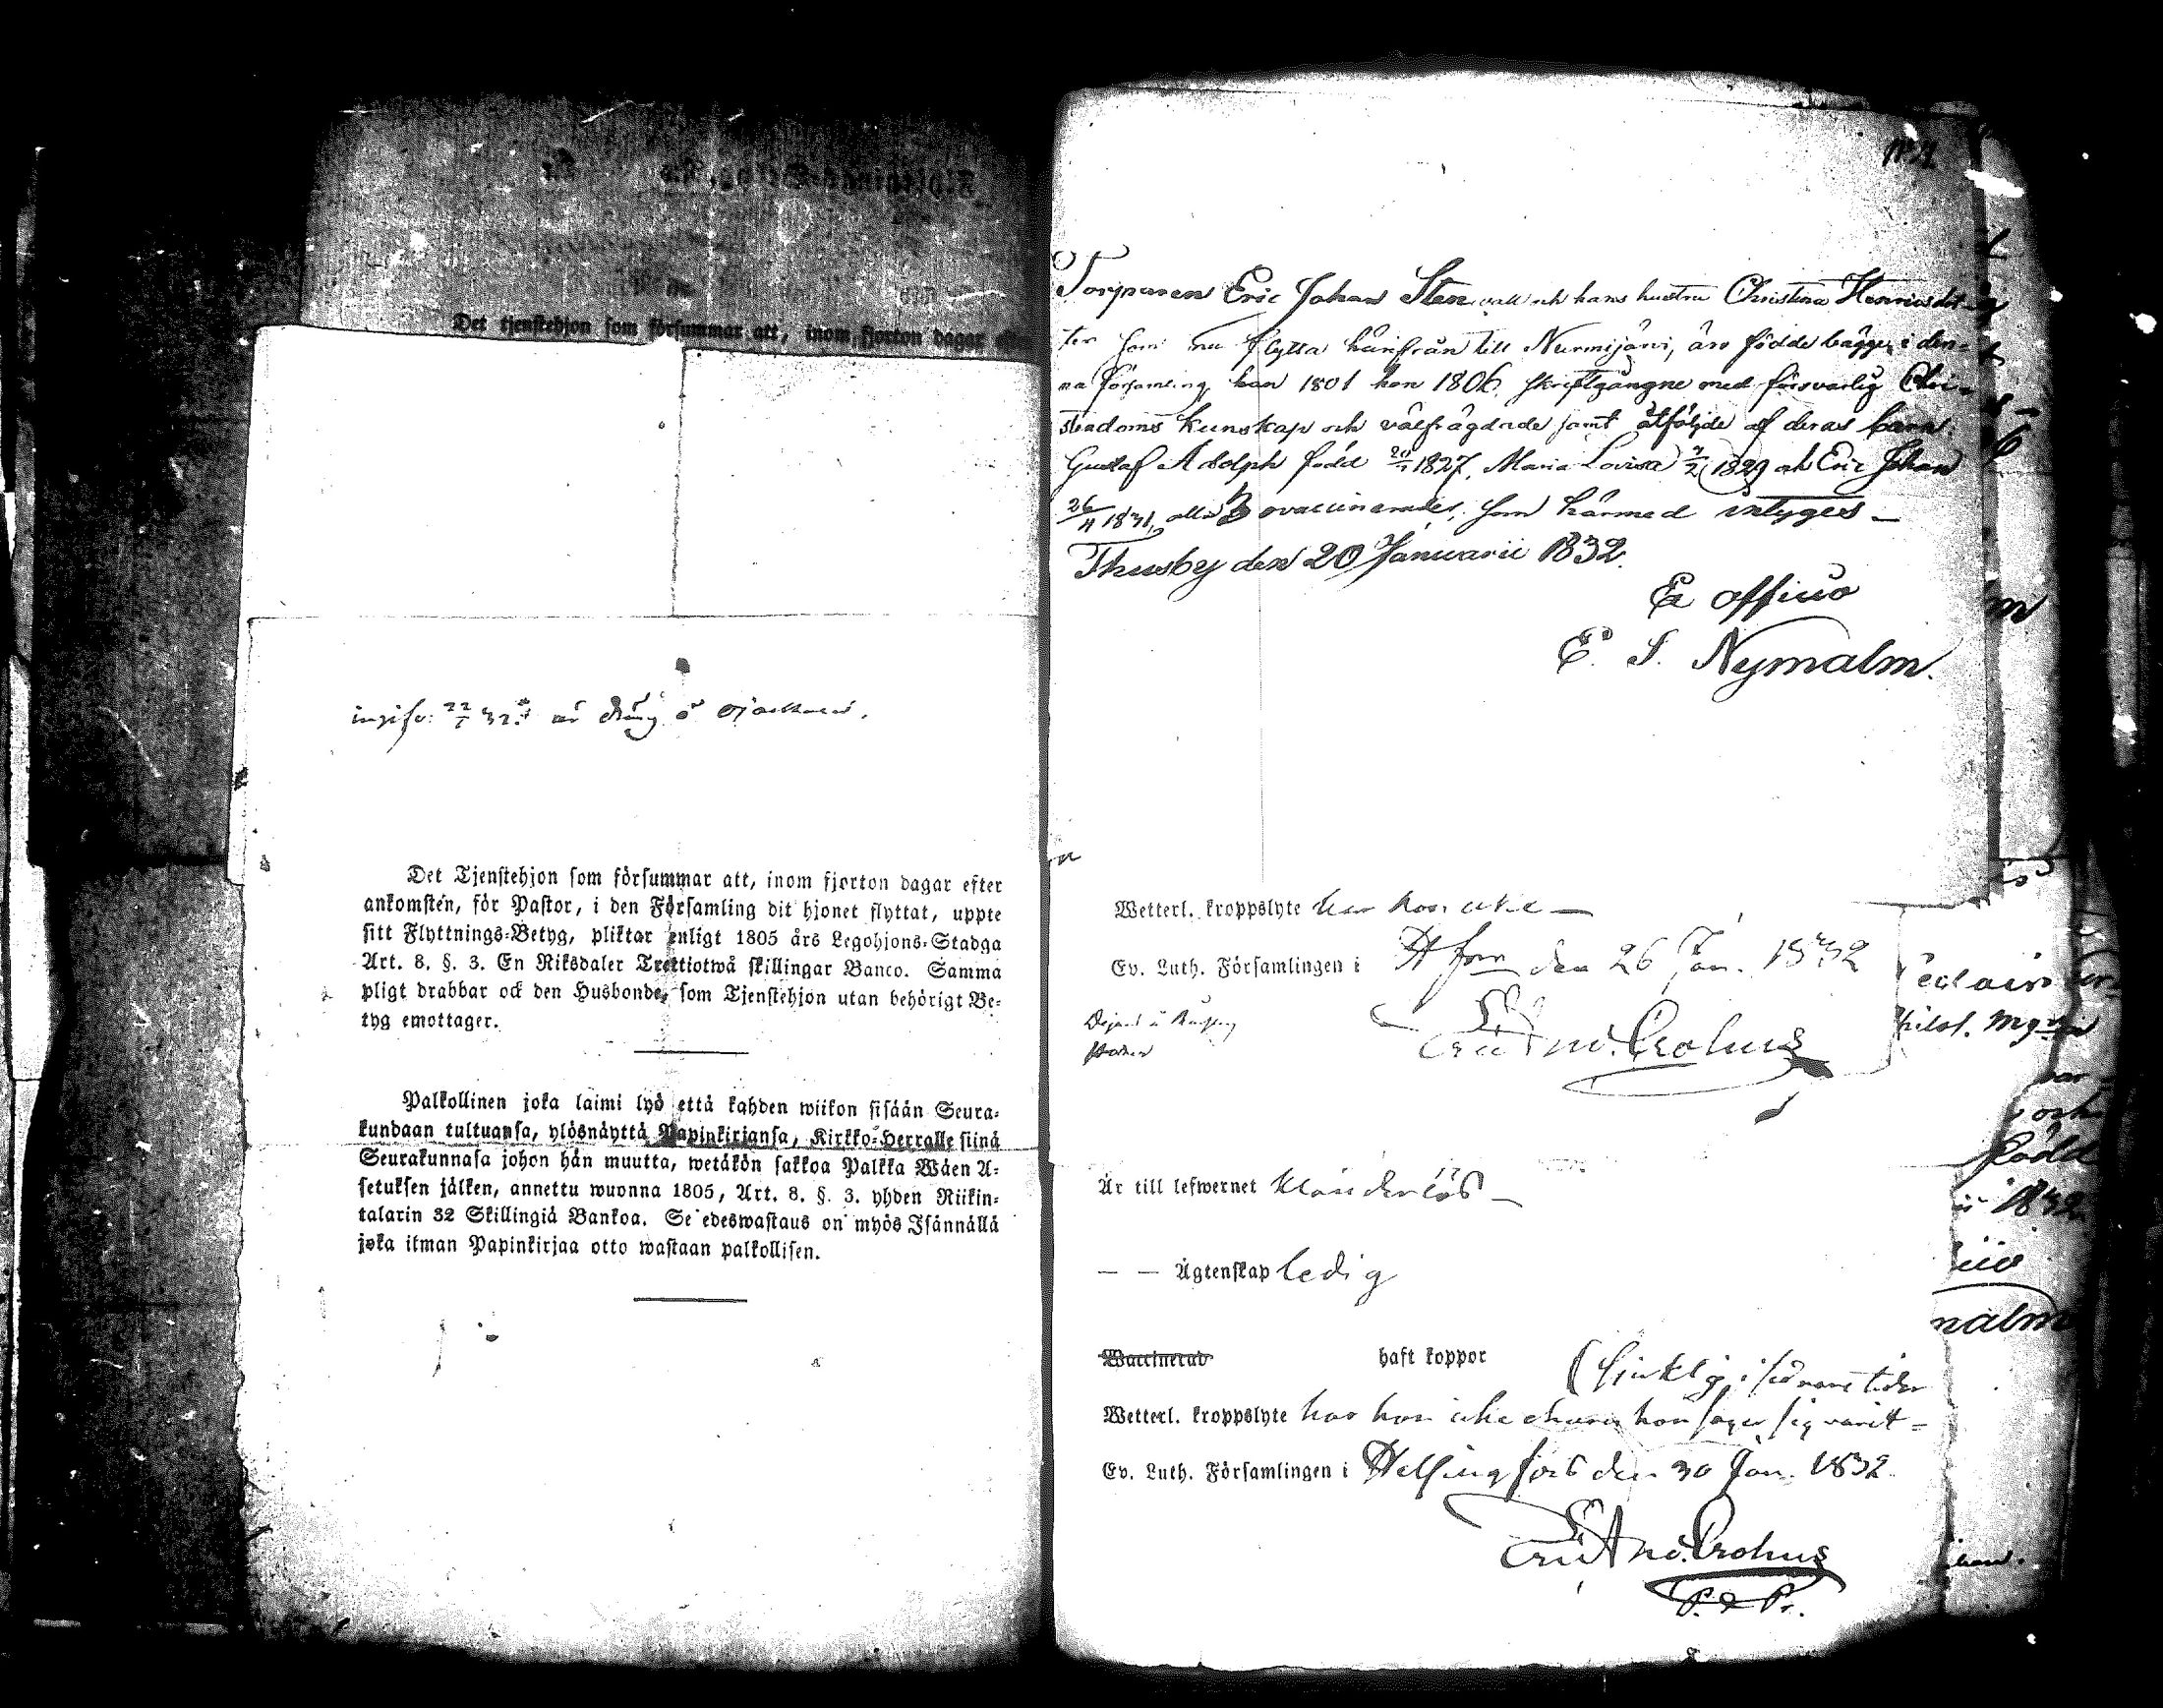 Det tjenstehjon som försummar att, inom fjorton dagar
ingifv: 22/1 32.
Det Tjenstehjon som försummar att, inom fjorton dagar efter
ankomsten, för Pastor, i den Församling dit hjonet flyttat, uppte
sitt Flyttnings-Betyg, pliktar enligt 1805 års Legohjons-Stadga
Art. 8. §. 3. En Riksdaler Trettiotwå skillingar Banco. Samma
pligt drabbar ock den Husbonde, som Tjenstehjon utan behörigt Be-
tyg emottager.
Palkollinen joka laimi lyö että kahden wiikon sisään Seura-
kundaan tultuansa, ylösnäyttä Papinkirjansa, Kirkko-Herralle siinä
Seurakunnasa johon hän muutta, wetäkön sakkoa Palkka Wäen A-
setuksen jälken, annettu wuonna 1805, Art. 8. §. 3. yhden Riikin-
talarin 32 Skillingiä Bankoa. Se edeswastaus on myös Isännällä
joka ilman Papinkirjaa otto wastaan palkollisen.
Torparen Eric Johan Stenvall och hans hustru Christina Henricsdot-
ter som nu flytta härifrån till Nurmijärvi, äro födde bägge i den-
na församling han 1801 hon 1806. skriftgångne med försvarlig Chri-
stendoms kunskap och välfrägdade samt åtföljde af deras barn
Gustaf Adolph född 1827, Maria Lovisa 1829 och Eric Johan
26/11 1831, alla 3 ovaccinerade, som härmed intyges —
Thusby den 20 Januarii 1832.
Ex officio
E. J. Nymalm.
Wetterl. kroppslyte har hon icke —
Ev. Luth. Församlingen i Hfors den 26 Jan. 1832
Crohns
Är till lefwernet klanderlös —
— — Ägtenskap ledig
Waccinerad haft koppor
(sjuklig i senare tider
Wetterl. kroppslyte har hon icke ehuru hon säger sig varit =
Ev. Luth. Församlingen i Helsingfors den 30 Jan. 1832.
Crohns
P. & Pr.
1832
nalm